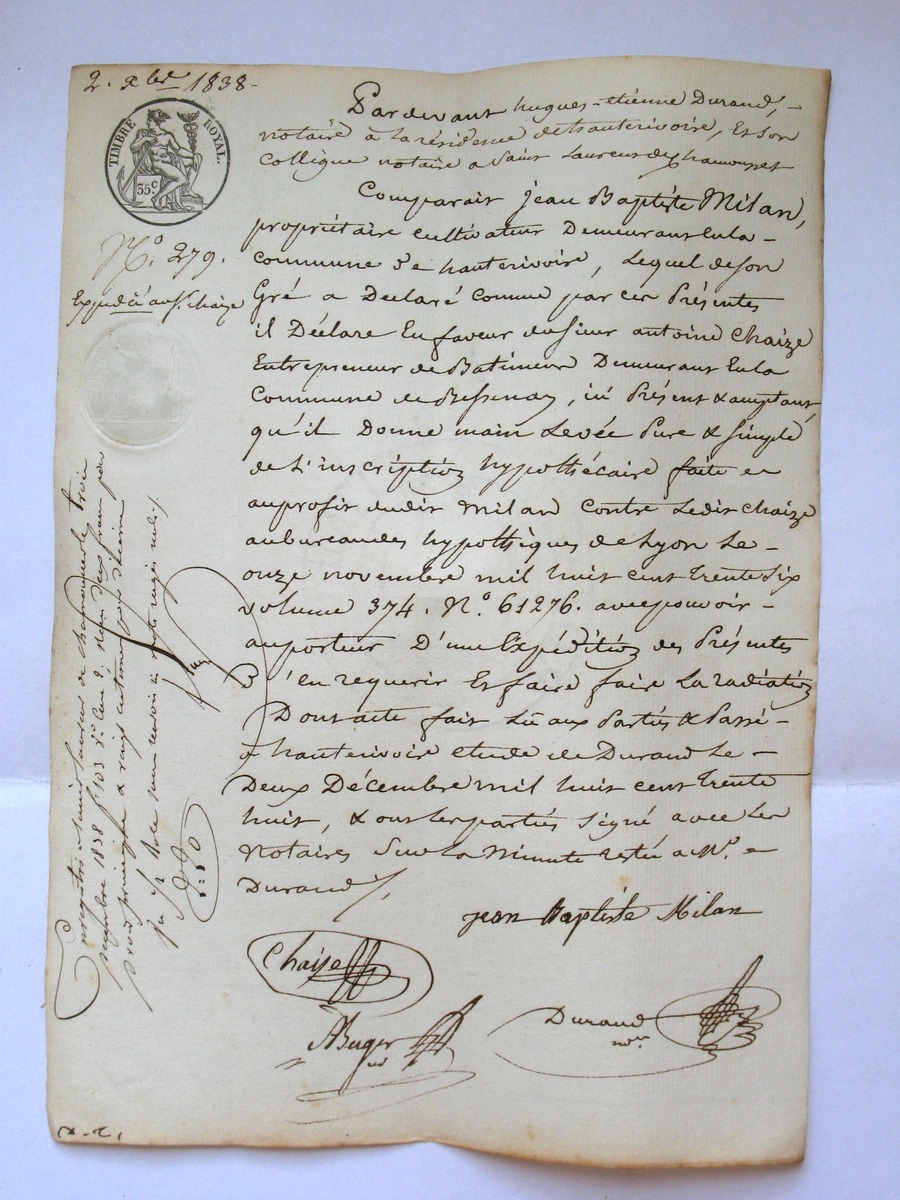 2. xbre 1838-
TIMBRE ROYAL.
35 c.
No. 279.
Expédié au Sr. chaize
Pardevant hugues-etienne Durand,-
notaire à la résidence de hauterivoire, et son
collègue notaire a Saint Laurent de chamousset
Comparait jean Baptiste Milan,
propriétaire cultivateur Demeurant en la-
commune de hauterivoire, Lequel de son
Gré a Déclaré comme par ces Présentes
il Déclare En faveur du sieur antoine chaize
Entrepreneur de Batiment Demeurant En la
Commune de Bessenay, ici Présent & acceptant,
qu'il Donne main Levée Pure & simple
de L'inscription hypothécaire faite en
au profit dudit Milan contre Ledit chaize
au bureau des hypothèques de Lyon Le-
onze novembre mil huit cent trente six
volume 374. No. 61276. avec pouvoir-
au porteur D'une Expédition des Présentes
d'en requerir Et faire faire La radiation
Dont acte fait Lu aux Parties & Passé-
a hauterivoire etude de Durand Le-
Deux Décembre mil huit cent trente
huit, & ont Les parties signé avec Les
notaires Sur La Minute restée a Me.
Durand
jean Baptiste Milan
Chaize
ABuger
Durand
nore
Enregistré a Saint Laurent de chamousset le trois
décembre 1838 fo 103 Ro. Cases 2. reçu deux francs pour
droit principal & vingt centimes pour décime
2:20